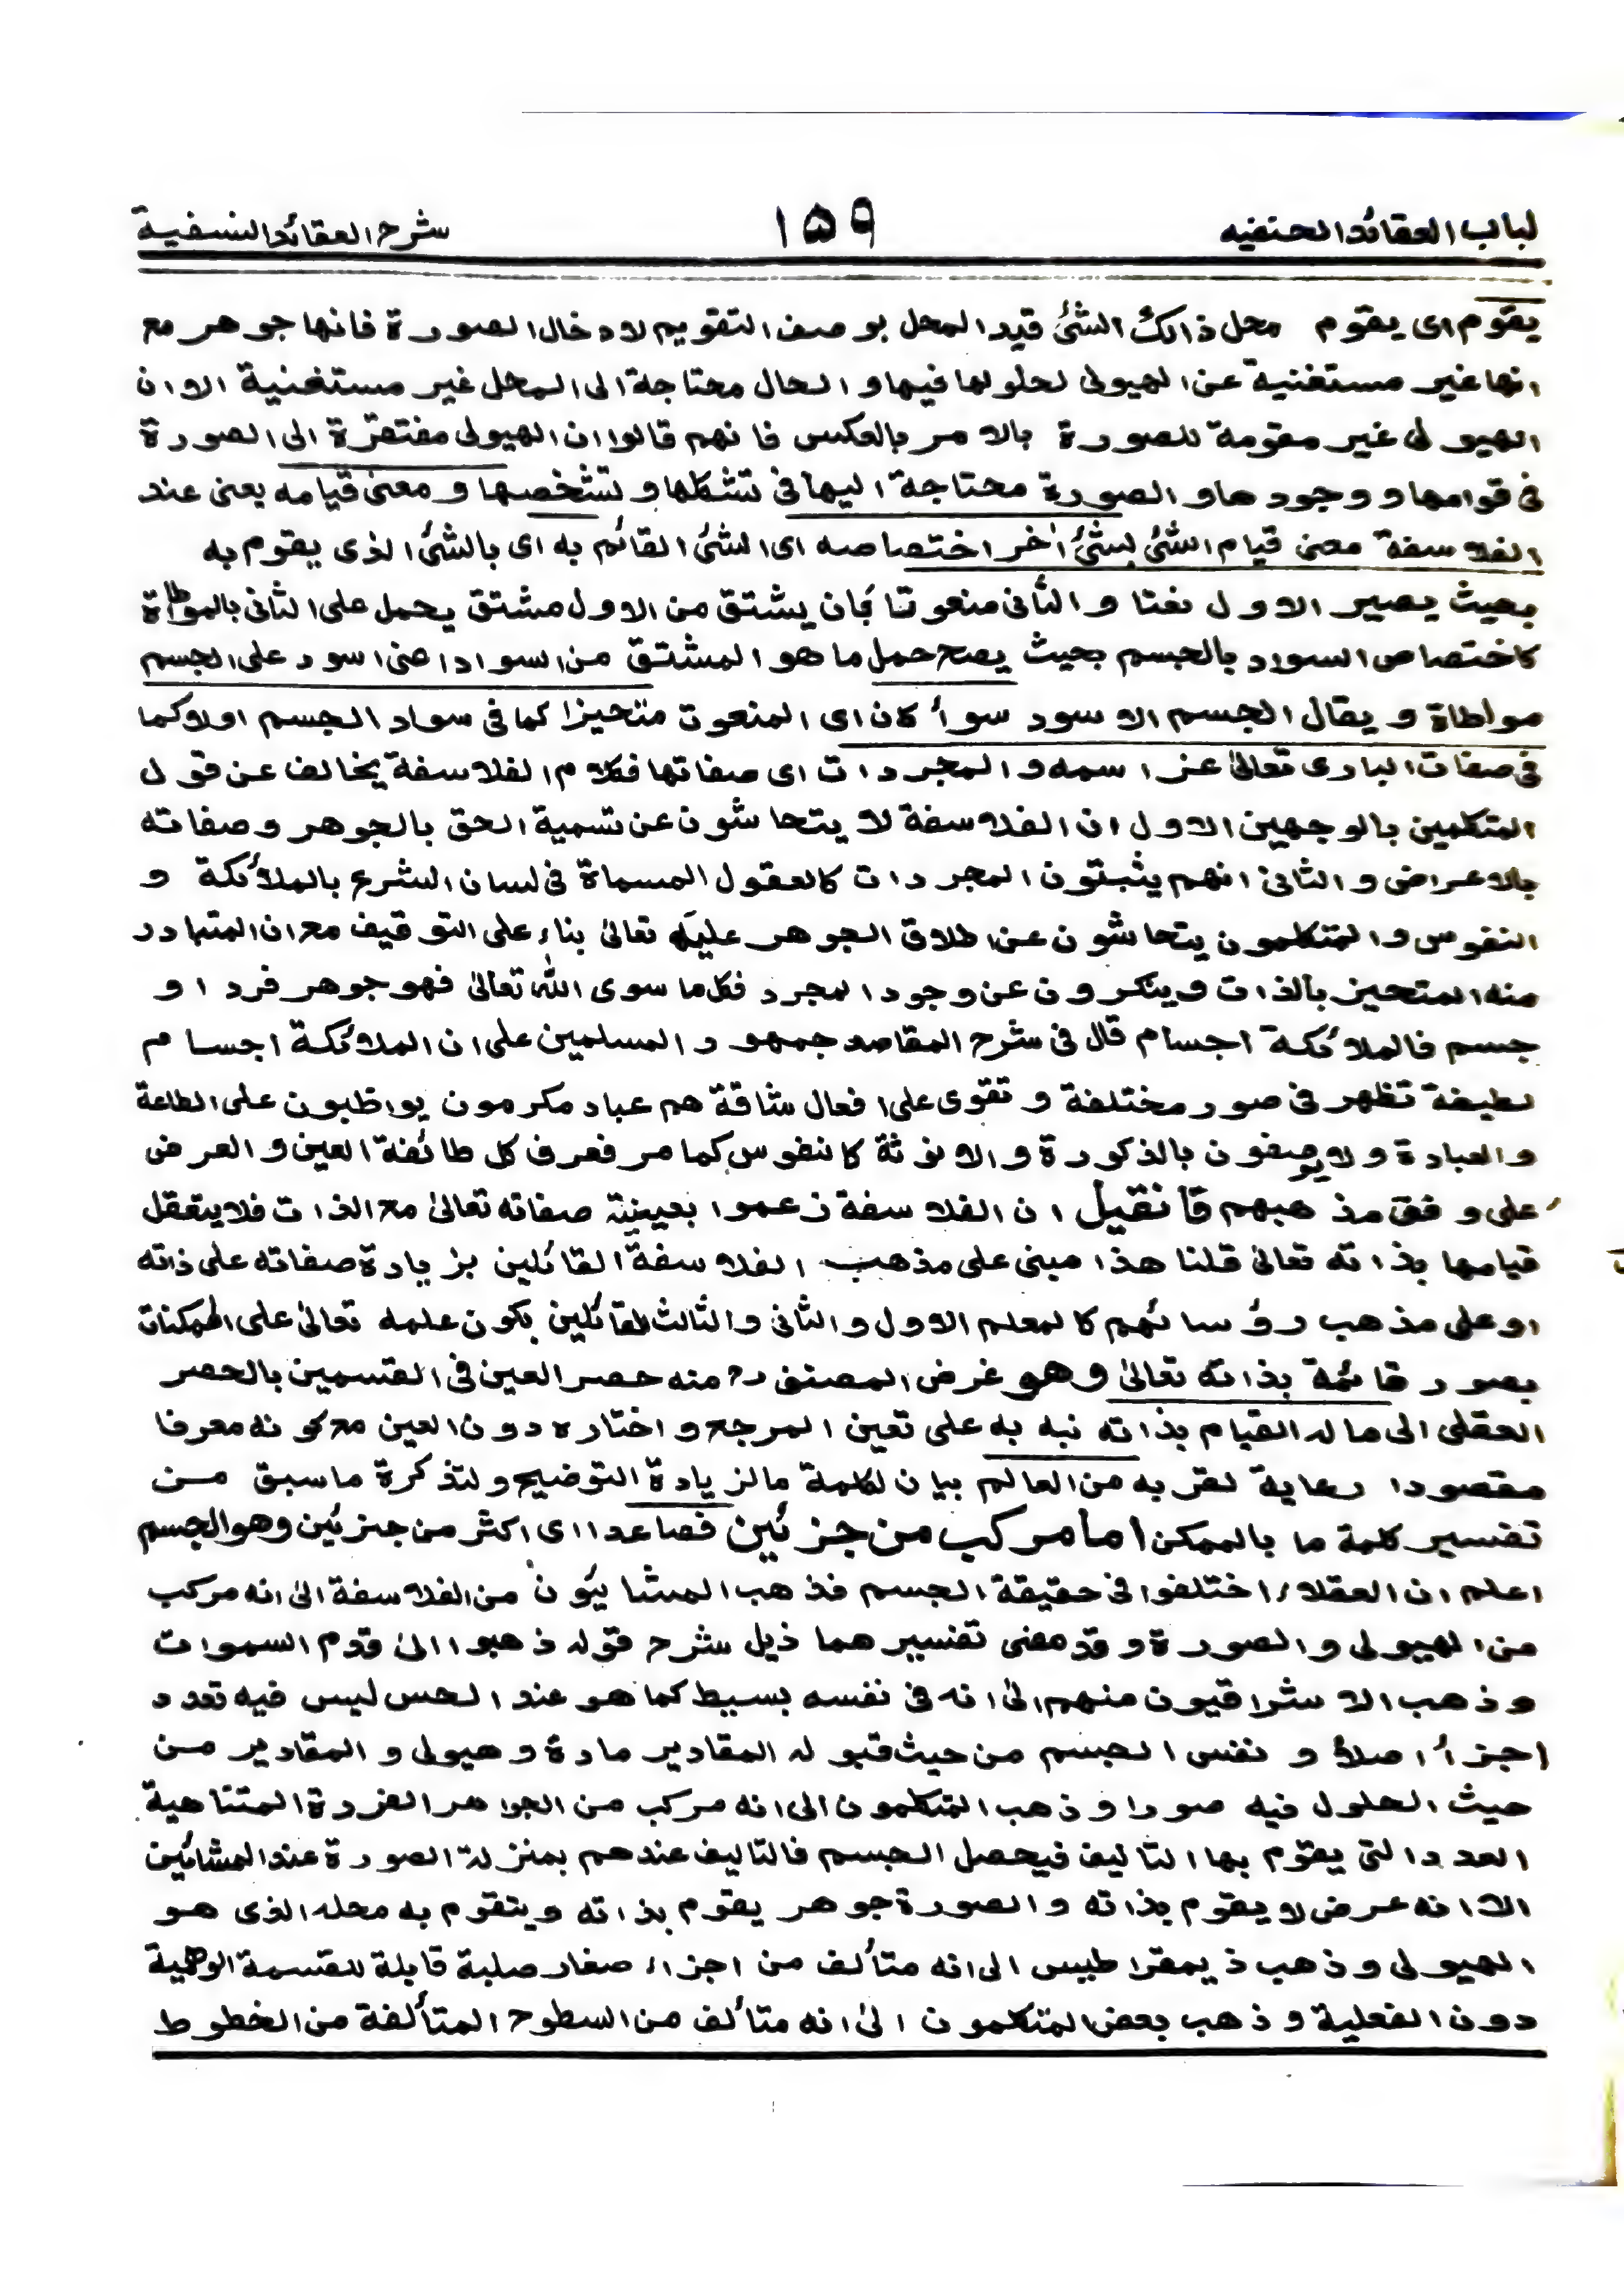 لباب العقائد الحنفيه ١٥٩ شرح العقائد النسفية
يقوم اى يقوم محل ذالك الشئ قيد المحل بوصف التقويم لادخال الصورة فانها جوهر مع
انها غير مستغنية عن الهيولى لحلولها فيها و الحال محتاجة الى المحل غير مستغنية الا ان
الهيولى غير مقومة للصورة بالامر بالعكس فانهم قالوا ان الهيولى مفتقرة الى الصورة
فى قوامها و وجودها و الصورة محتاجة اليها فى تشكلها و تشخصها و معنى قيامه يعنى عند
الفلاسفة معنى قيام الشئ بشئ اٰخر اختصاصه اى الشئ القائم به اى بالشئ الذى يقوم به
بحيث يصير الاول نعتا و الثانى منعوتا بان يشتق من الاول مشتق يحمل على الثانى بالمواطاة
كاختصاص السواد بالجسم بحيث يصح حمل ما هو المشتق من السواد اعنى اسود على الجسم
مواطاة و يقال الجسم الاسود سوأ كان اى المنعوت متحيزا كما فى سواد الجسم اولا كما
فى صفات البارى تعالىٰ عز اسمه و المجردات اى صفاتها فكلام الفلاسفة يخالف عن قول
المتكلمين بالوجهين الاول ان الفلاسفة لا يتحاشون عن تسمية الحق بالجوهر و صفاته
بالاعراض و الثانى انهم يثبتون المجردات كالعقول المسماة فى لسان الشرع بالملائكة و
النفوس و المتكلمون يتحاشون عن اطلاق الجوهر عليه تعالىٰ بناء على التوقيف مع ان المتبادر
منه المتحيز بالذات و ينكرون عن وجود المجرد فكل ما سوى الله تعالىٰ فهو جوهر فرد او
جسم فالملائكة اجسام قال فى شرح المقاصد جمهور المسلمين على ان الملائكة اجسام
لطيفة تظهر فى صور مختلفة و تقوى على افعال شاقة هم عباد مكرمون يواظبون على الطاعة
و العبادة و لا يوصفون بالذكورة و الانوثة كالنفوس كما مر فعرف كل طائفة العين و العرض
على وفق مذهبهم فأن قيل ان الفلاسفة زعموا بعينية صفاته تعالىٰ مع الذات فلا يتعقل
قيامها بذاته تعالىٰ قلنا هذا مبنى على مذهب الفلاسفة القائلين بزيادة صفاته على ذاته
او على مذهب رؤسائهم كالمعلم الاول و الثانى و الثالث القائلين بكون علمه تعالىٰ على الممكنات
بصور قائمة بذاته تعالىٰ وهو غرض المصنف رح منه حصر العين فى القسمين بالحصر
العقلى الى ما له القيام بذاته نبه به على تعين المرجع و اختاره دون العين مع كونه معرفا
مقصودا رعاية لقربه من العالم بيان لكلمة ما لزيادة التوضيح و لتذكرة ما سبق من
تفسير كلمة ما بالممكن اما مركب من جزئين فصاعدا اى اكثر من جزئين وهو الجسم
اعلم ان العقلاء اختلفوا فى حقيقة الجسم فذهب المشايئون من الفلاسفة الىٰ انه مركب
من الهيولى و الصورة و قد مضى تفسيرهما ذيل شرح قوله ذهبوا الىٰ قدم السموات
و ذهب الاشراقيون منهم الىٰ انه فى نفسه بسيط كما هو عند الحس ليس فيه تعدد
اجزأ اصلاً و نفس الجسم من حيث قبوله المقادير مادة و هيولى و المقادير من
حيث الحلول فيه صورا و ذهب المتكلمون الى انه مركب من الجواهر الفردة المتناهية
العدد التى يقوم بها التاليف فيحصل الجسم فالتاليف عندهم بمنزلة الصورة عند المشائين
الا انه عرض لا يقوم بذاته و الصورة جوهر يقوم بذاته و يتقوم به محله الذى هو
الهيولى و ذهب ذيمقراطيس الى انه متألف من اجزاء صغار صلبة قابلة للقسمة الوهمية
دون الفعلية و ذهب بعض المتكلمون الىٰ انه متألف من السطوح المتألفة من الخطوط